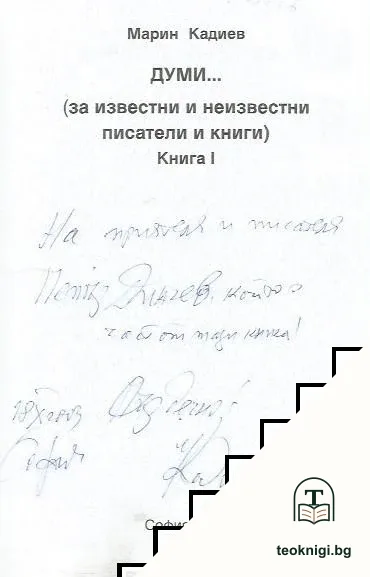 Марин Кадиев
ДУМИ...
(за известни и неизвестни
писатели и книги)
Книга I
На приятеля и писателя
Петър Динчев, който е
част от тази книга!
София
Софи
T
teoknigi.bg